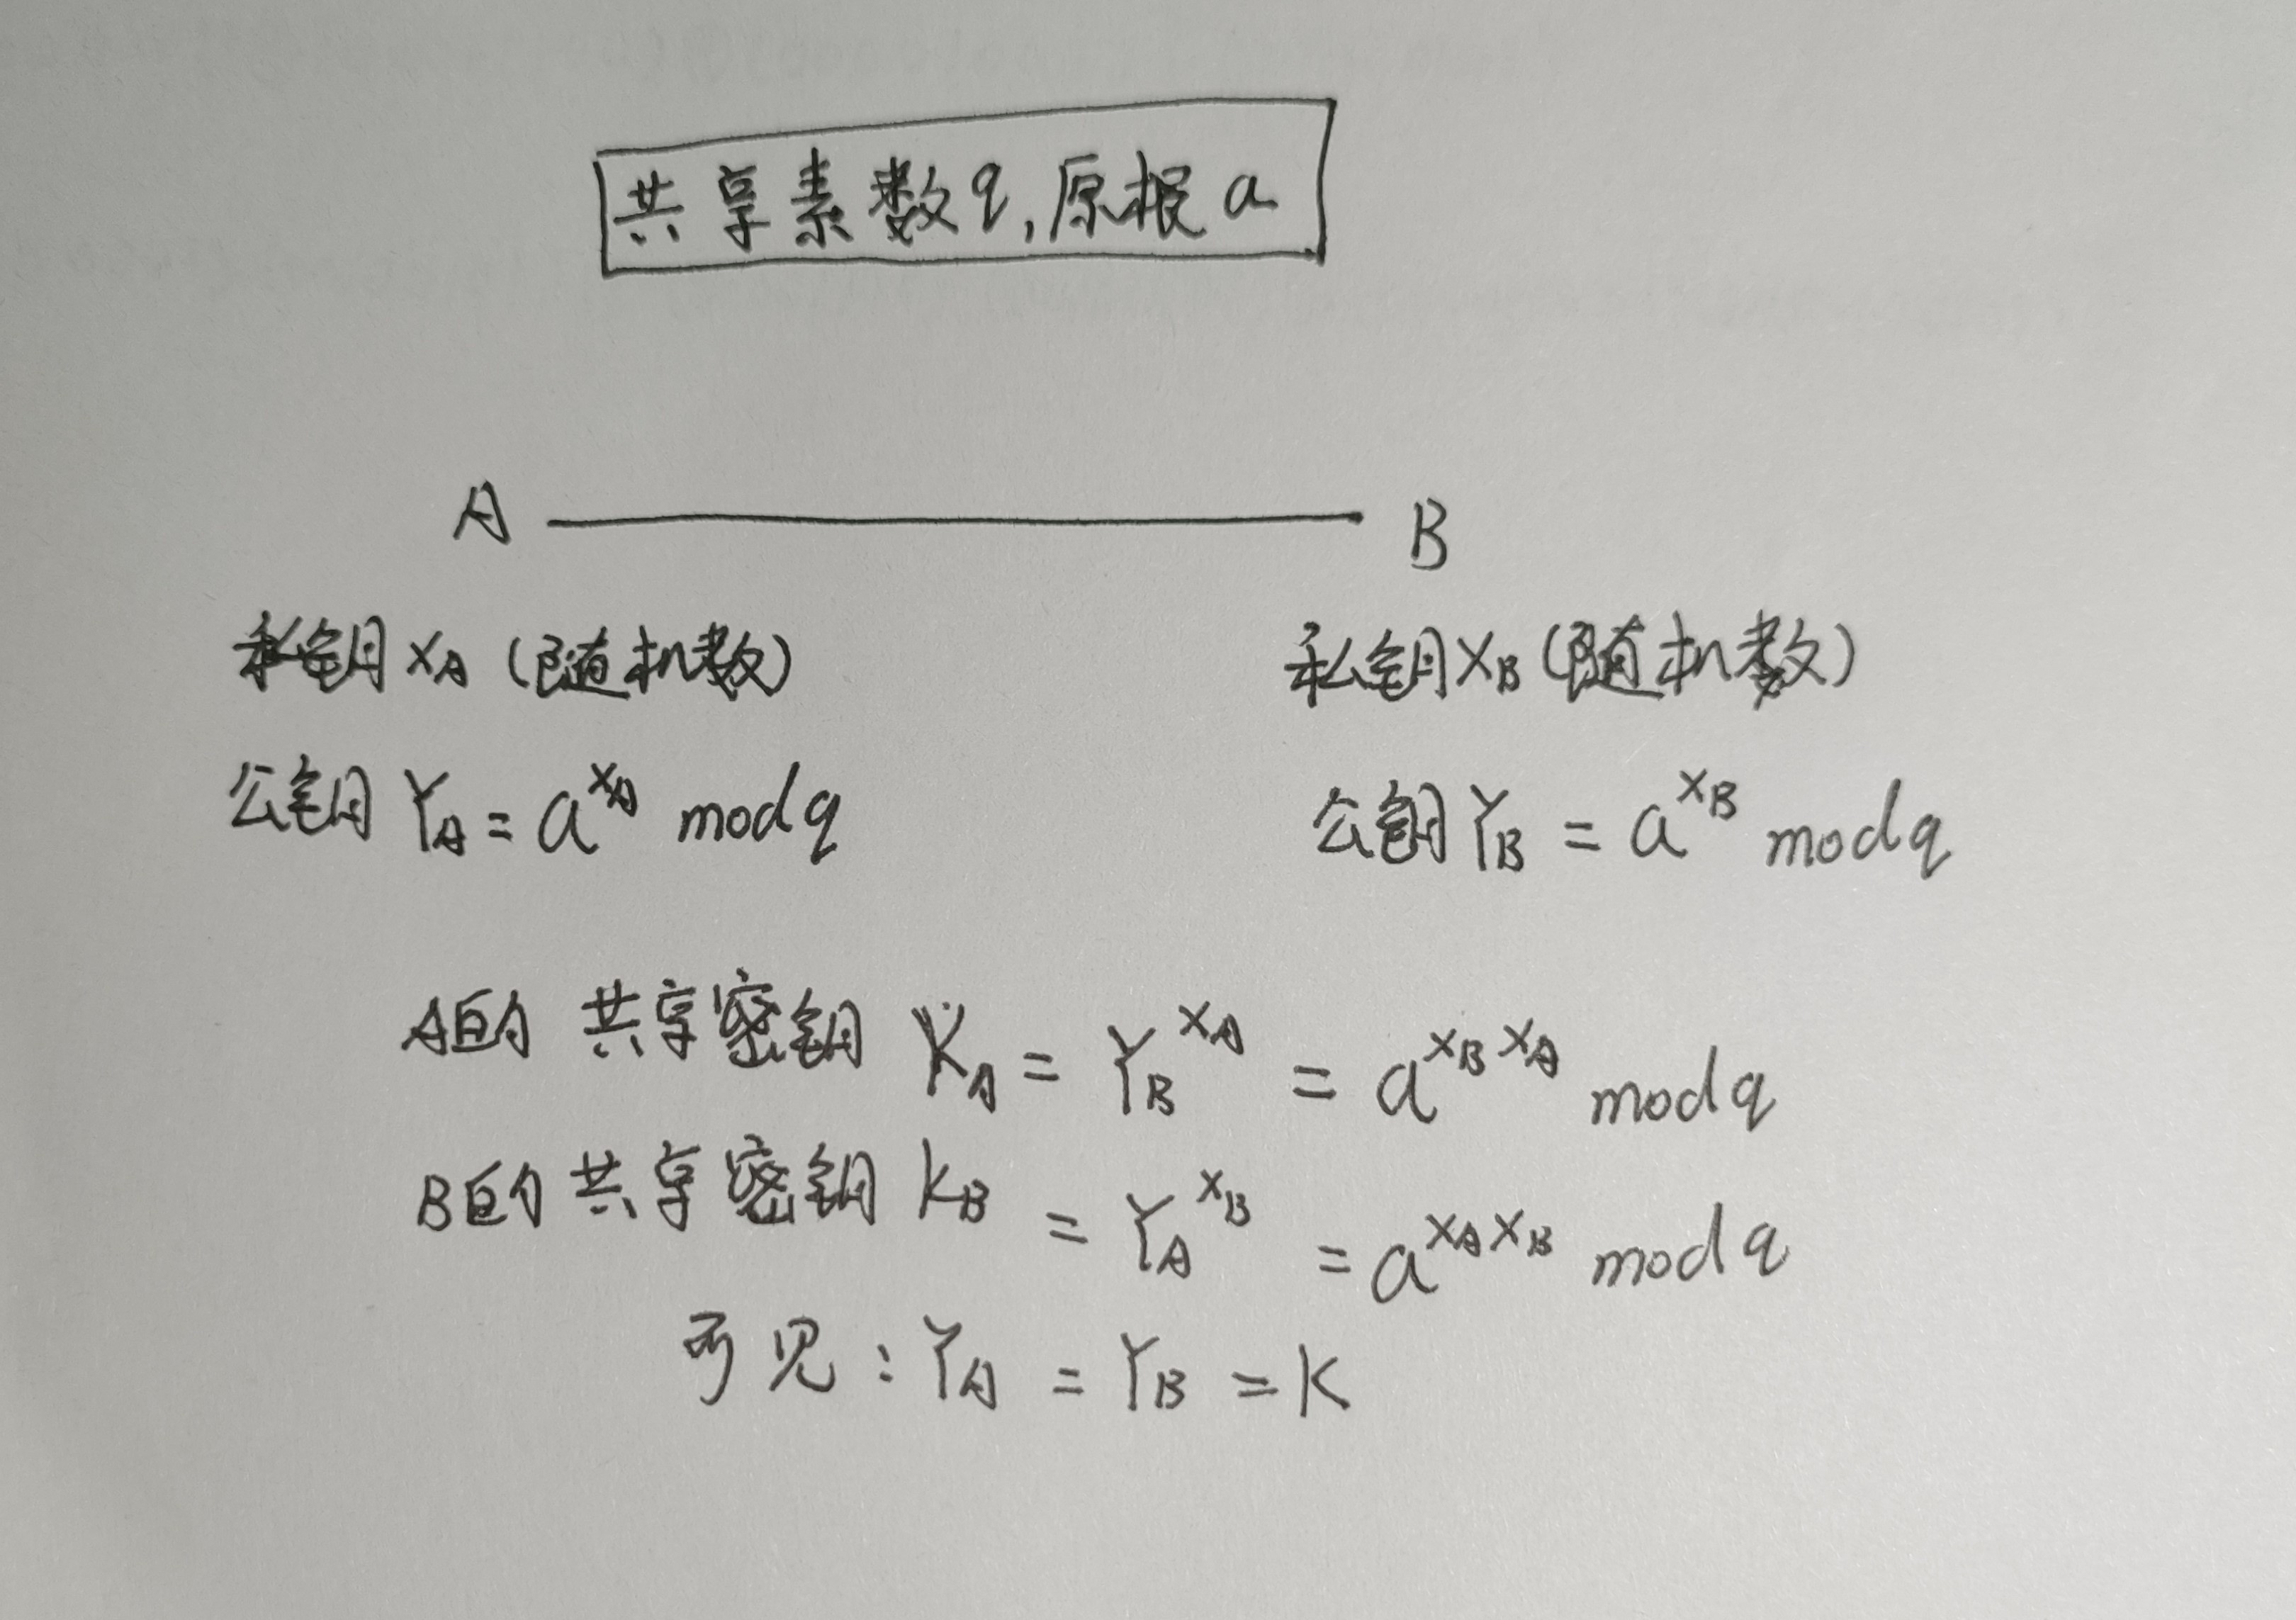 共享素数q,原根a
A B
私钥X_A(随机数) 私钥X_B(随机数)
公钥Y_A=a^{X_A} mod q 公钥Y_B=a^{X_B} mod q
A的共享密钥K_A=Y_B^{X_A}=a^{X_B X_A} mod q
B的共享密钥K_B=Y_A^{X_B}=a^{X_A X_B} mod q
可见:Y_A=Y_B=K